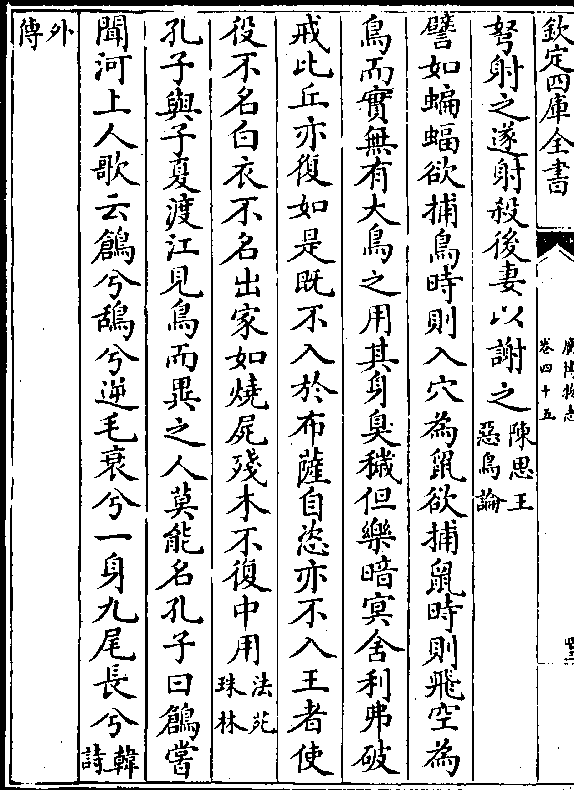 欽定四庫全書
廣博物志
卷四十五
弩射之遂射殺後妻以謝之陳思王惡鳥論
譬如蝙蝠欲捕鳥時則入穴為鼠欲捕鼠時則飛空為
鳥而實無有大鳥之用其身臭穢但樂暗冥舍利弗破
戒比丘亦復如是既不入於布薩自恣亦不入王者使
役不名白衣不名出家如燒屍殘木不復中用法苑珠林
孔子與子夏渡江見鳥而異之人莫能名孔子曰鶬嘗
聞河上人歌云鶬兮鴰兮逆毛衰兮一身九尾長兮韓詩
外傳